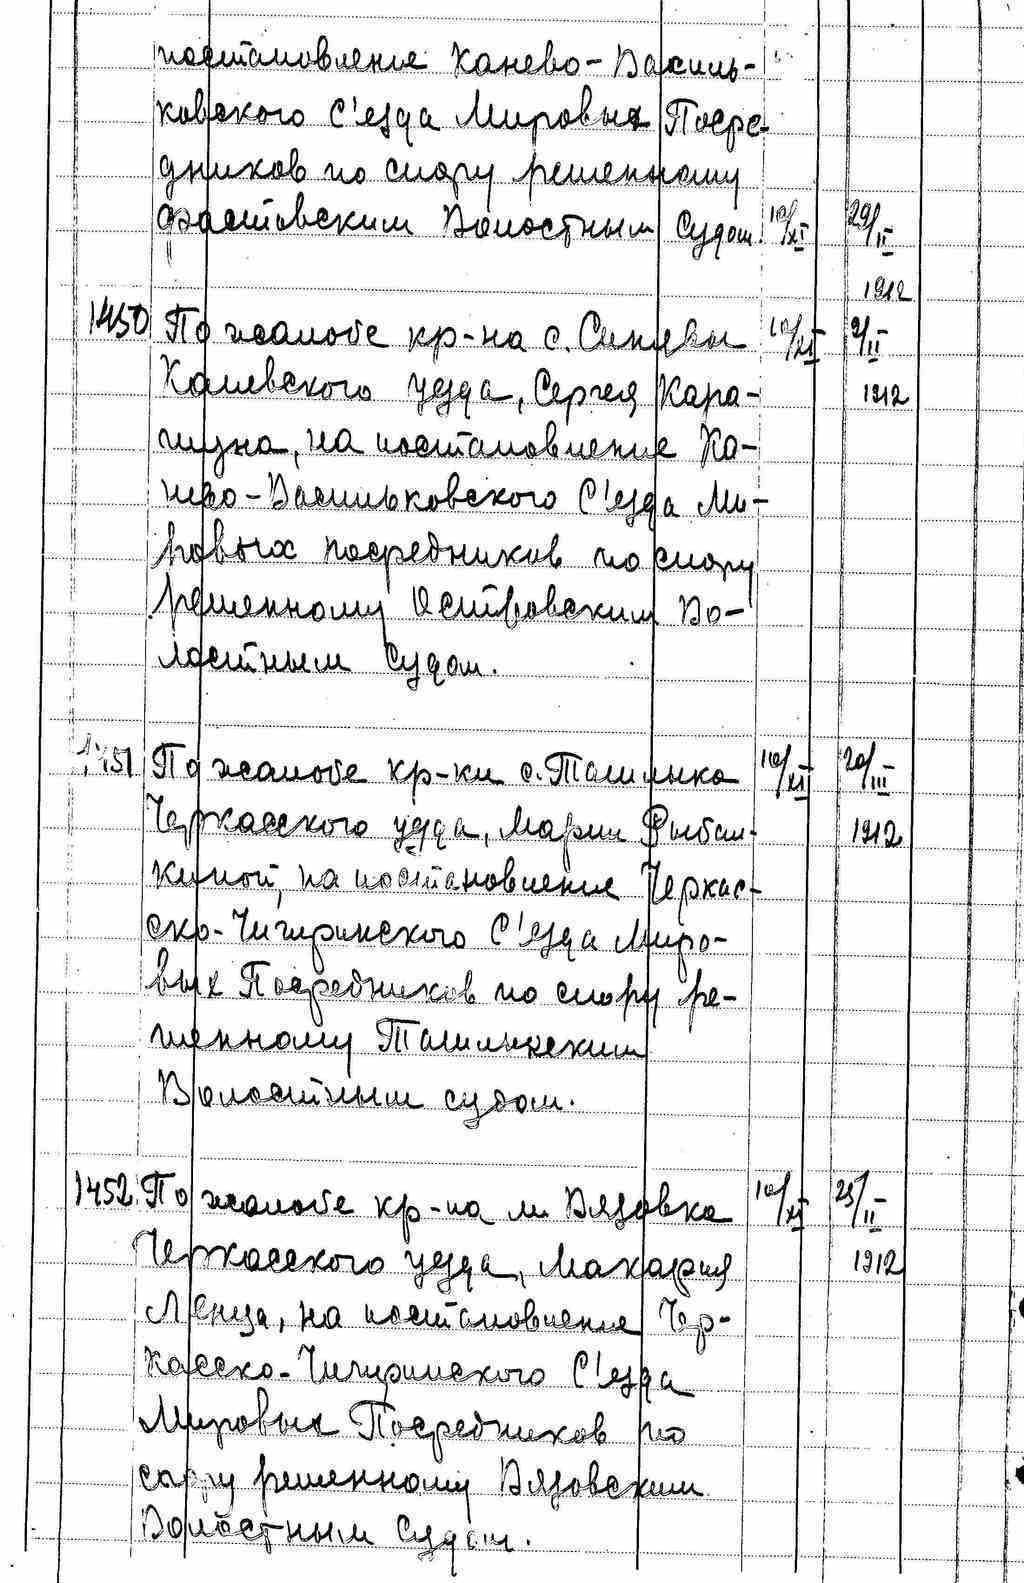 постановление Канево-Василь-
ковского С'езда Мировых Посре-
дников по спору решенному
Фастовским Волостным Судом. 10/XI 29/II
1912
1450 По жалобе кр-на с. Синявы 10/XI 9/II
Каневского уезда, Сергея Кара- 1912
на постановление Ка-
нево-Васильковского С'езда Ми-
ровых посредников по спору
решенному Островским Во-
лостным Судом.
1451 По жалобе кр-ки с. Ташлыка 10/XI 20/III
Черкасского уезда, Марии Рыбал- 1912
киной, на постановление Черкас-
ско-Чигиринского С'езда Миро-
вых Посредников по спору ре-
шенному Ташлыкским
Волостным судом.
1452. По жалобе кр-на м. Вязовка 10/XI 25/II
Черкасского уезда, Макария 1912
на постановление Чер-
касско-Чигиринского С'езда
Мировых Посредников по
спору решенному Вязовским
Волостным Судом.